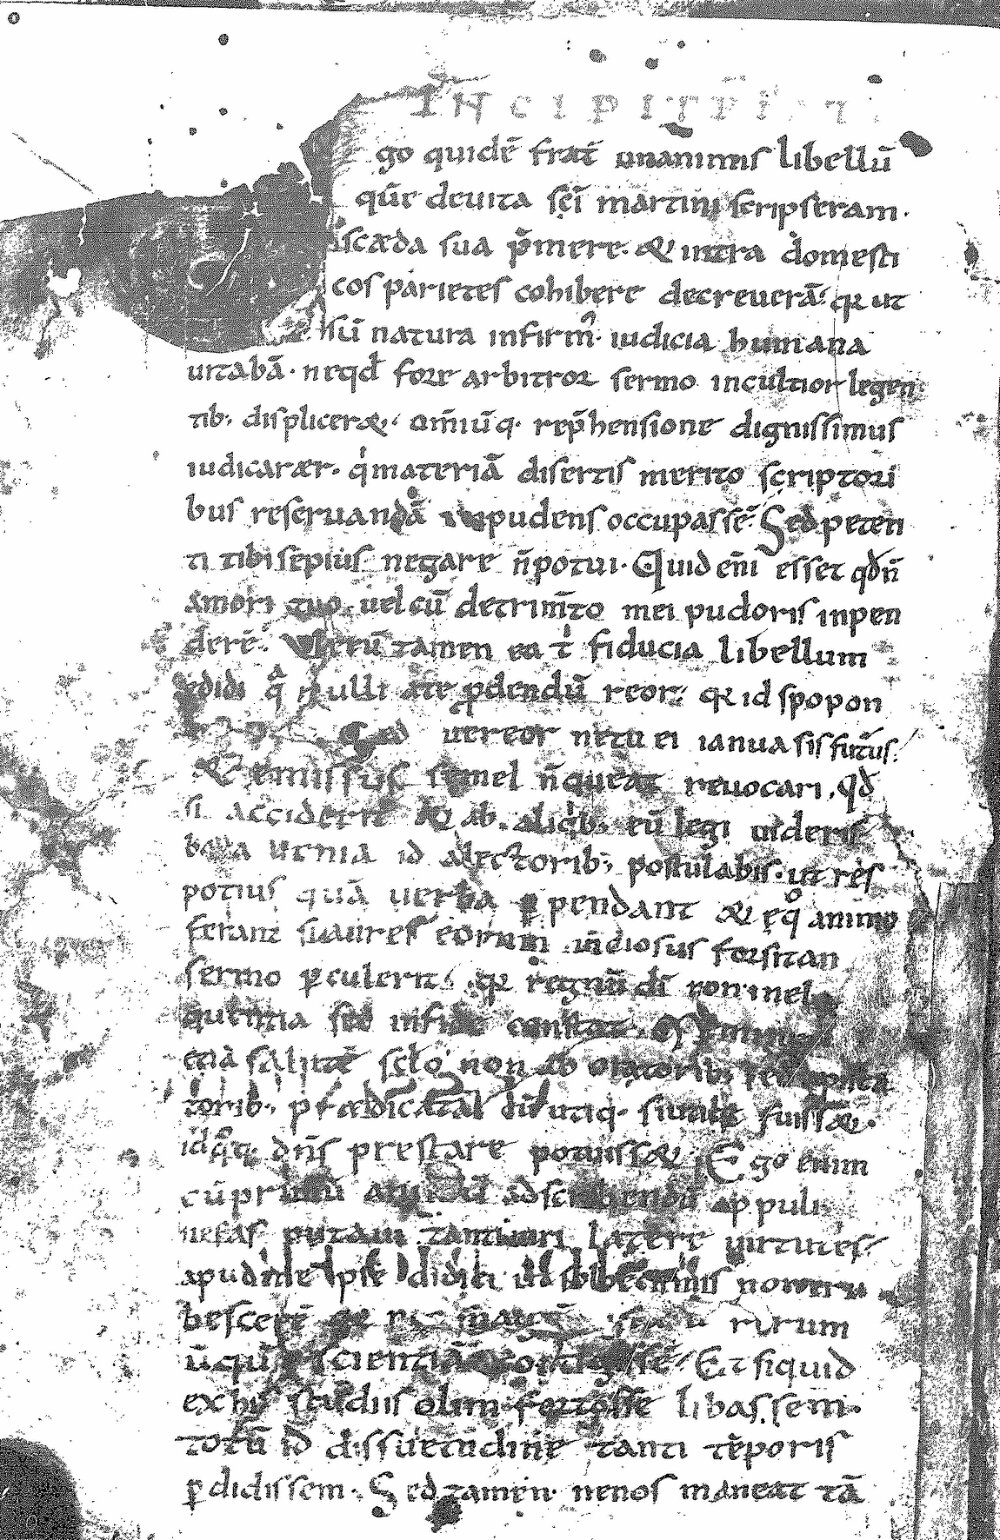 INCIPIT
go quidē frat̄ unanimis libellū
quē deuita sc̄i martini scripseram.
scæda sua p̄mere. & intra domesti
cos parietes cohibere decreuerā. qr ut
sū natura infirm᷒. iudicia humana
uitabā. neqd̄ fore arbitror sermo incultior legen
tib. displicer&. om̄iūq. rep̄hensione dignissimus
iudicarær. qi materiā disertis merito scriptori
bus reseruandā inpudens occupassē. Sed peten
ti tibi sepius negare n̄ potui. Quid eni̅ esset qd̄ n̄
amori tuo uel cū detrim̄to mei pudoris inpen
derē. Uerū tamen ea t' fiducia libellum
edidi q̄ nulli a te ꝓdendū reor. qr id spopon
Sed uereor ne tu ei ianua sis futus.
& emissus semel n̄ queat reuocari. qd̄
si acciderit & ab. aliqib. eū legi uideris
bona uenia id alectorib; postulabis. ut res
potius quā uerba ꝑpendant & eq̊ animo
ferant si aures eorum uidiosus forsitan
sermo ꝑculerit. qr regnū dī non inel
quentia sed infide constat. Meminer
etiā salutē sclo non ab oratorib.
torib. prædicatā cū utiq. si utile fuiss&.
idq̊q. dn̄s prestare potuiss&. Ego enim
cū primū animū adscribendū appuli
nefas putaui tanti uiri latere uirtutes.
apud me ipse didici ut solœcismis non eru
bescerē rerum
ūquā scientiā contigisse. Et siquid
ex his studiis olim fortasse libassem.
totū id dissuetudine tanti tēporis
ꝑdidissem. Sed tamen nenos maneat tā